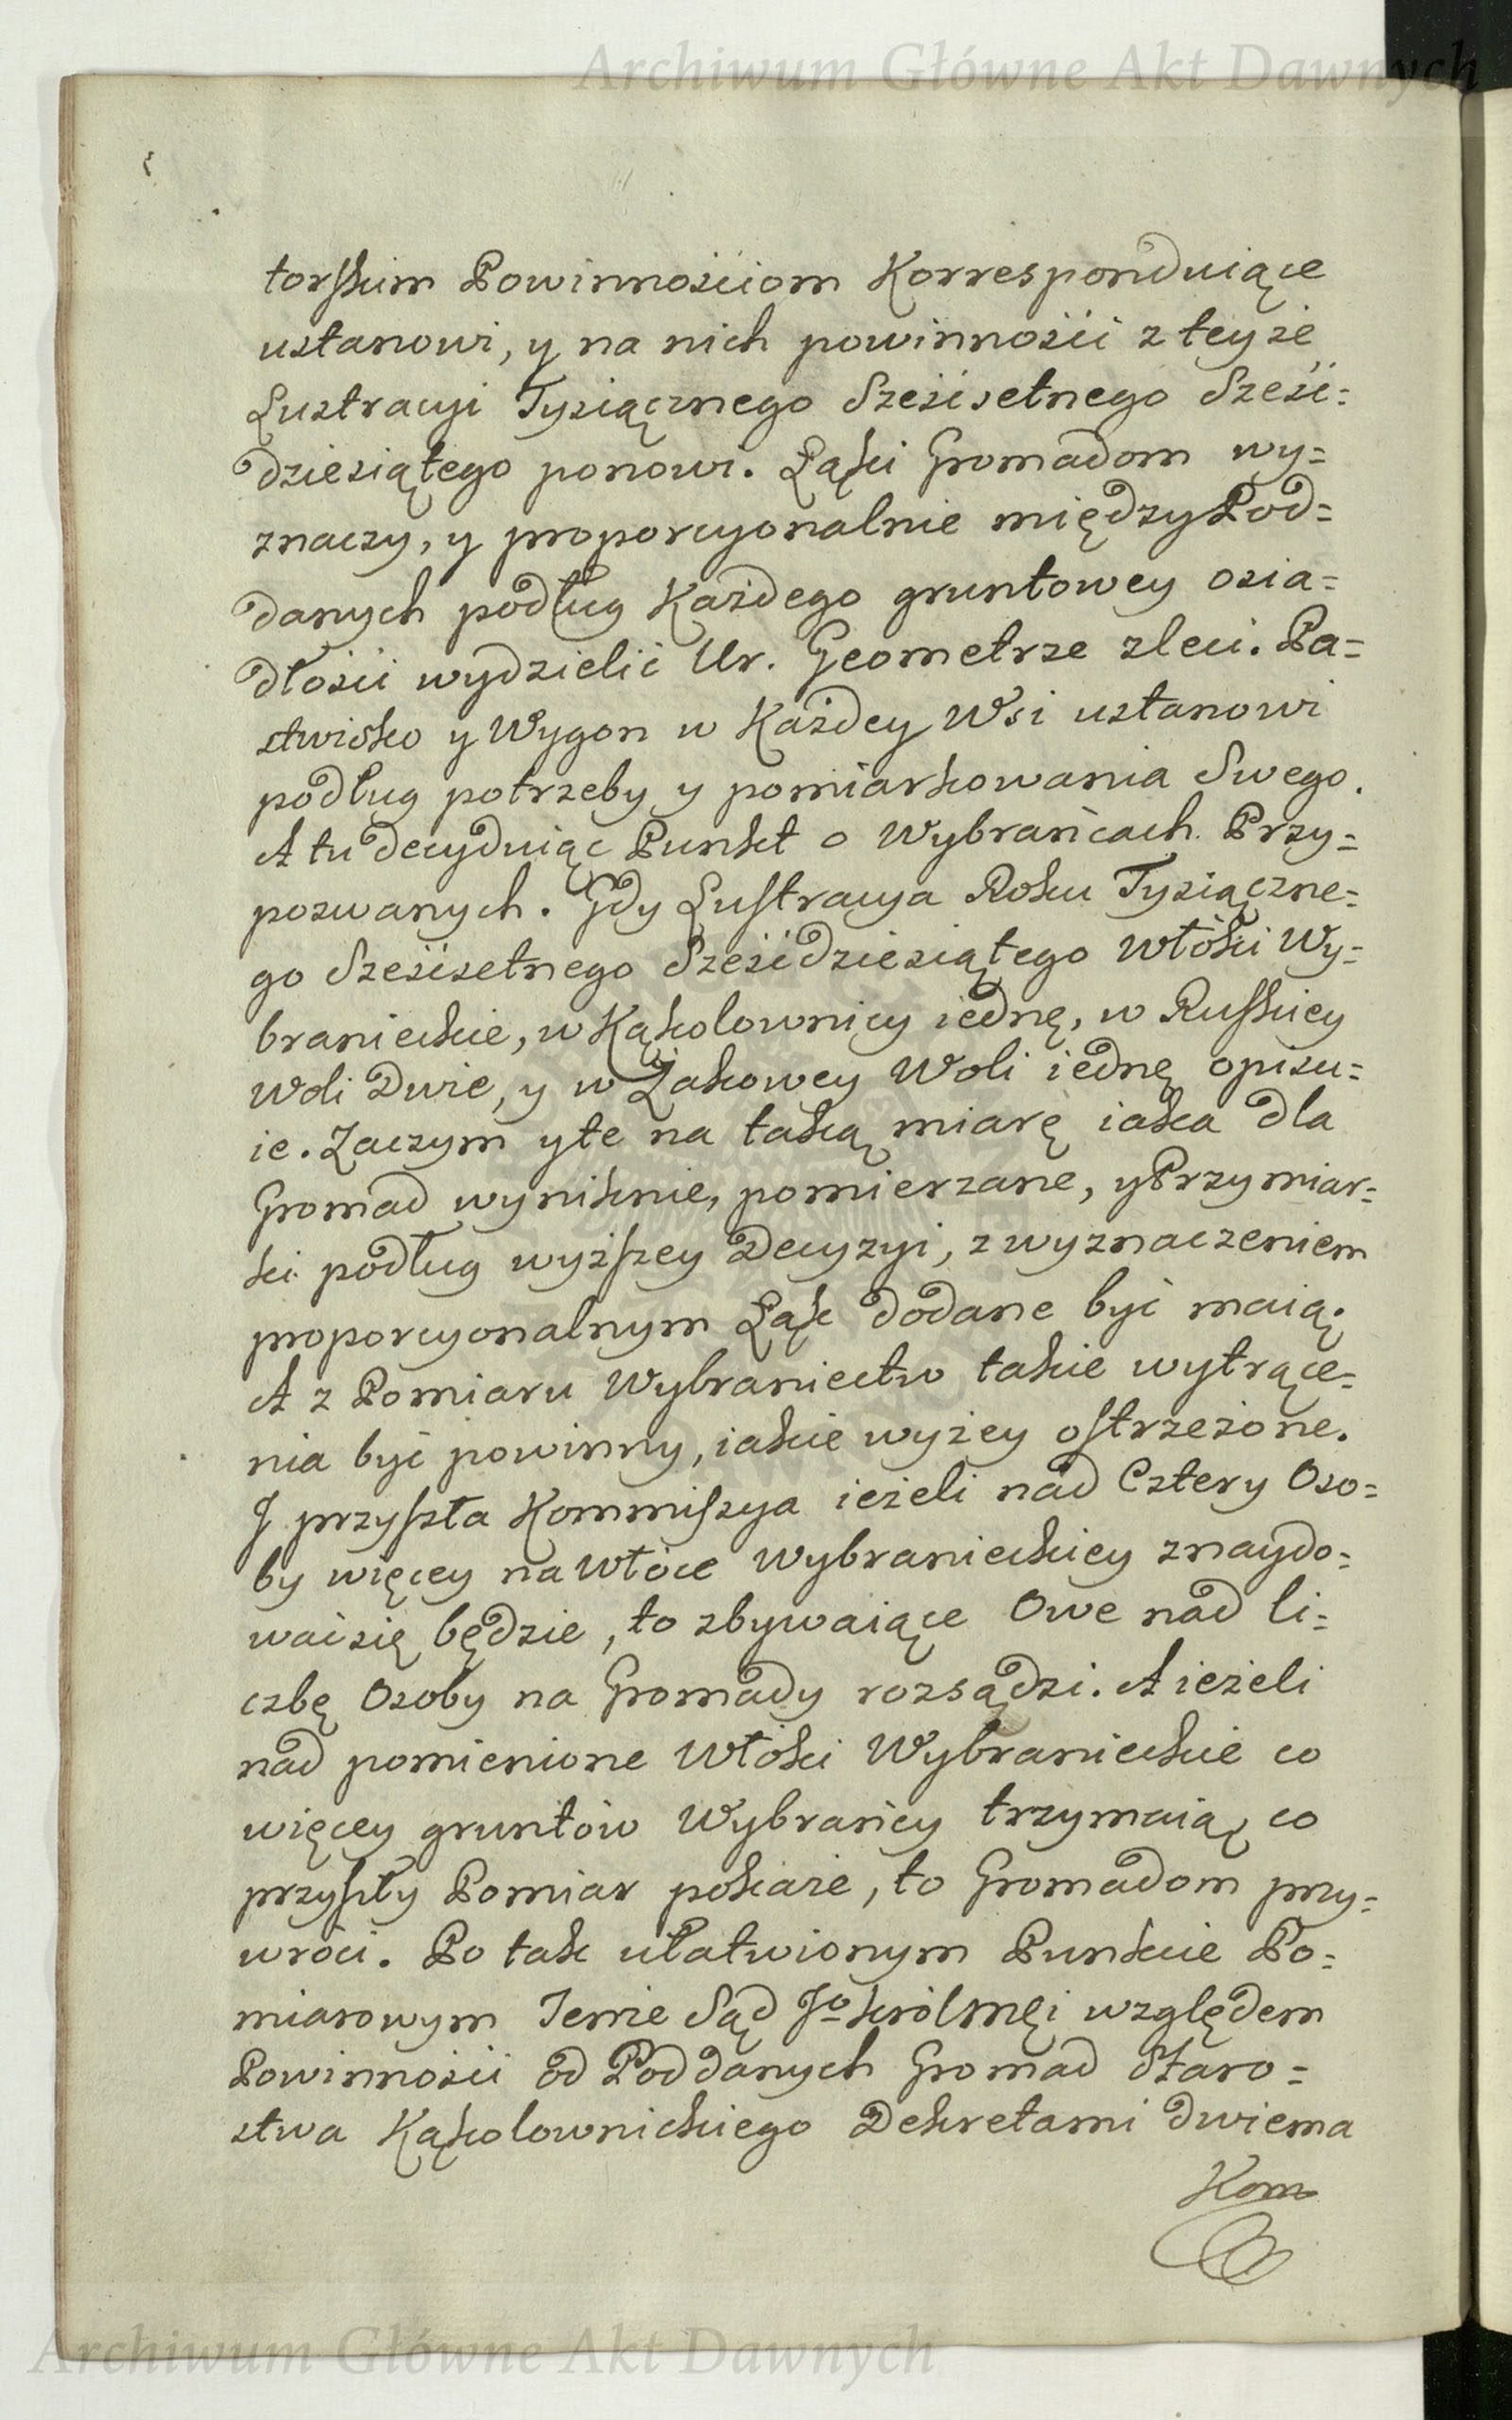 Archiwum Główne Akt Dawnych
torskim Powinnościom Korrespondujące
ustanowi, y na nich powinności z teyże
Lustracyi Tysiącznego Sześćsetnego Sześć=
dziesiątego ponowi. Łąki Gromadom wy=
znaczy, y proporcyonalnie między Pod=
danych podług Każdego gruntowey osia=
dłości wydzielić Ur. Geometrze zleci. Pa=
stwisko y Wygon w Każdey Wsi ustanowi
podług potrzeby y pomiarkowania Swego.
A tu decyduiąc Punkt o Wybrańcach Przy=
pozwanych. Gdy Lustracya Roku Tysiączne=
go Sześćsetnego Sześćdziesiątego Włóki Wy=
branieckie, w Kąkolownicy iednę, w Ruskiey
Woli Dwie, y w Żakowey Woli iednę opisu=
ie. Zaczym y te na taką miarę iaka dla
Gromad wyniknie, pomierzane, y Przymiar=
ki podług wyższey Decyzyi, z wyznaczeniem
proporcyonalnym Łąk dodane być maią.
A z Pomiaru Wybraniectw takie wytrące=
nia być powinny, iakie wyżey ostrzeżone.
J przyszła Kommiszya ieżeli nad Cztery Oso=
by więcey na Włóce Wybranieckiey znaydo=
wać się będzie, to zbywaiące Owe nad li=
czbę Osoby na Gromady rozsądzi. A ieżeli
nad pomienione Włóki Wybranieckie co
więcey gruntów Wybrańcy trzymaią, co
przyszły Pomiar pokaże, to Gromadom przy=
wróci. Po tak ułatwionym Punkcie Po=
miarowym Tenże Sąd Jº Królmći względem
Powinności od Poddanych Gromad Staro=
stwa Kąkolownickiego Dekretami dwiema
Kom
Archiwum Główne Akt Dawnych